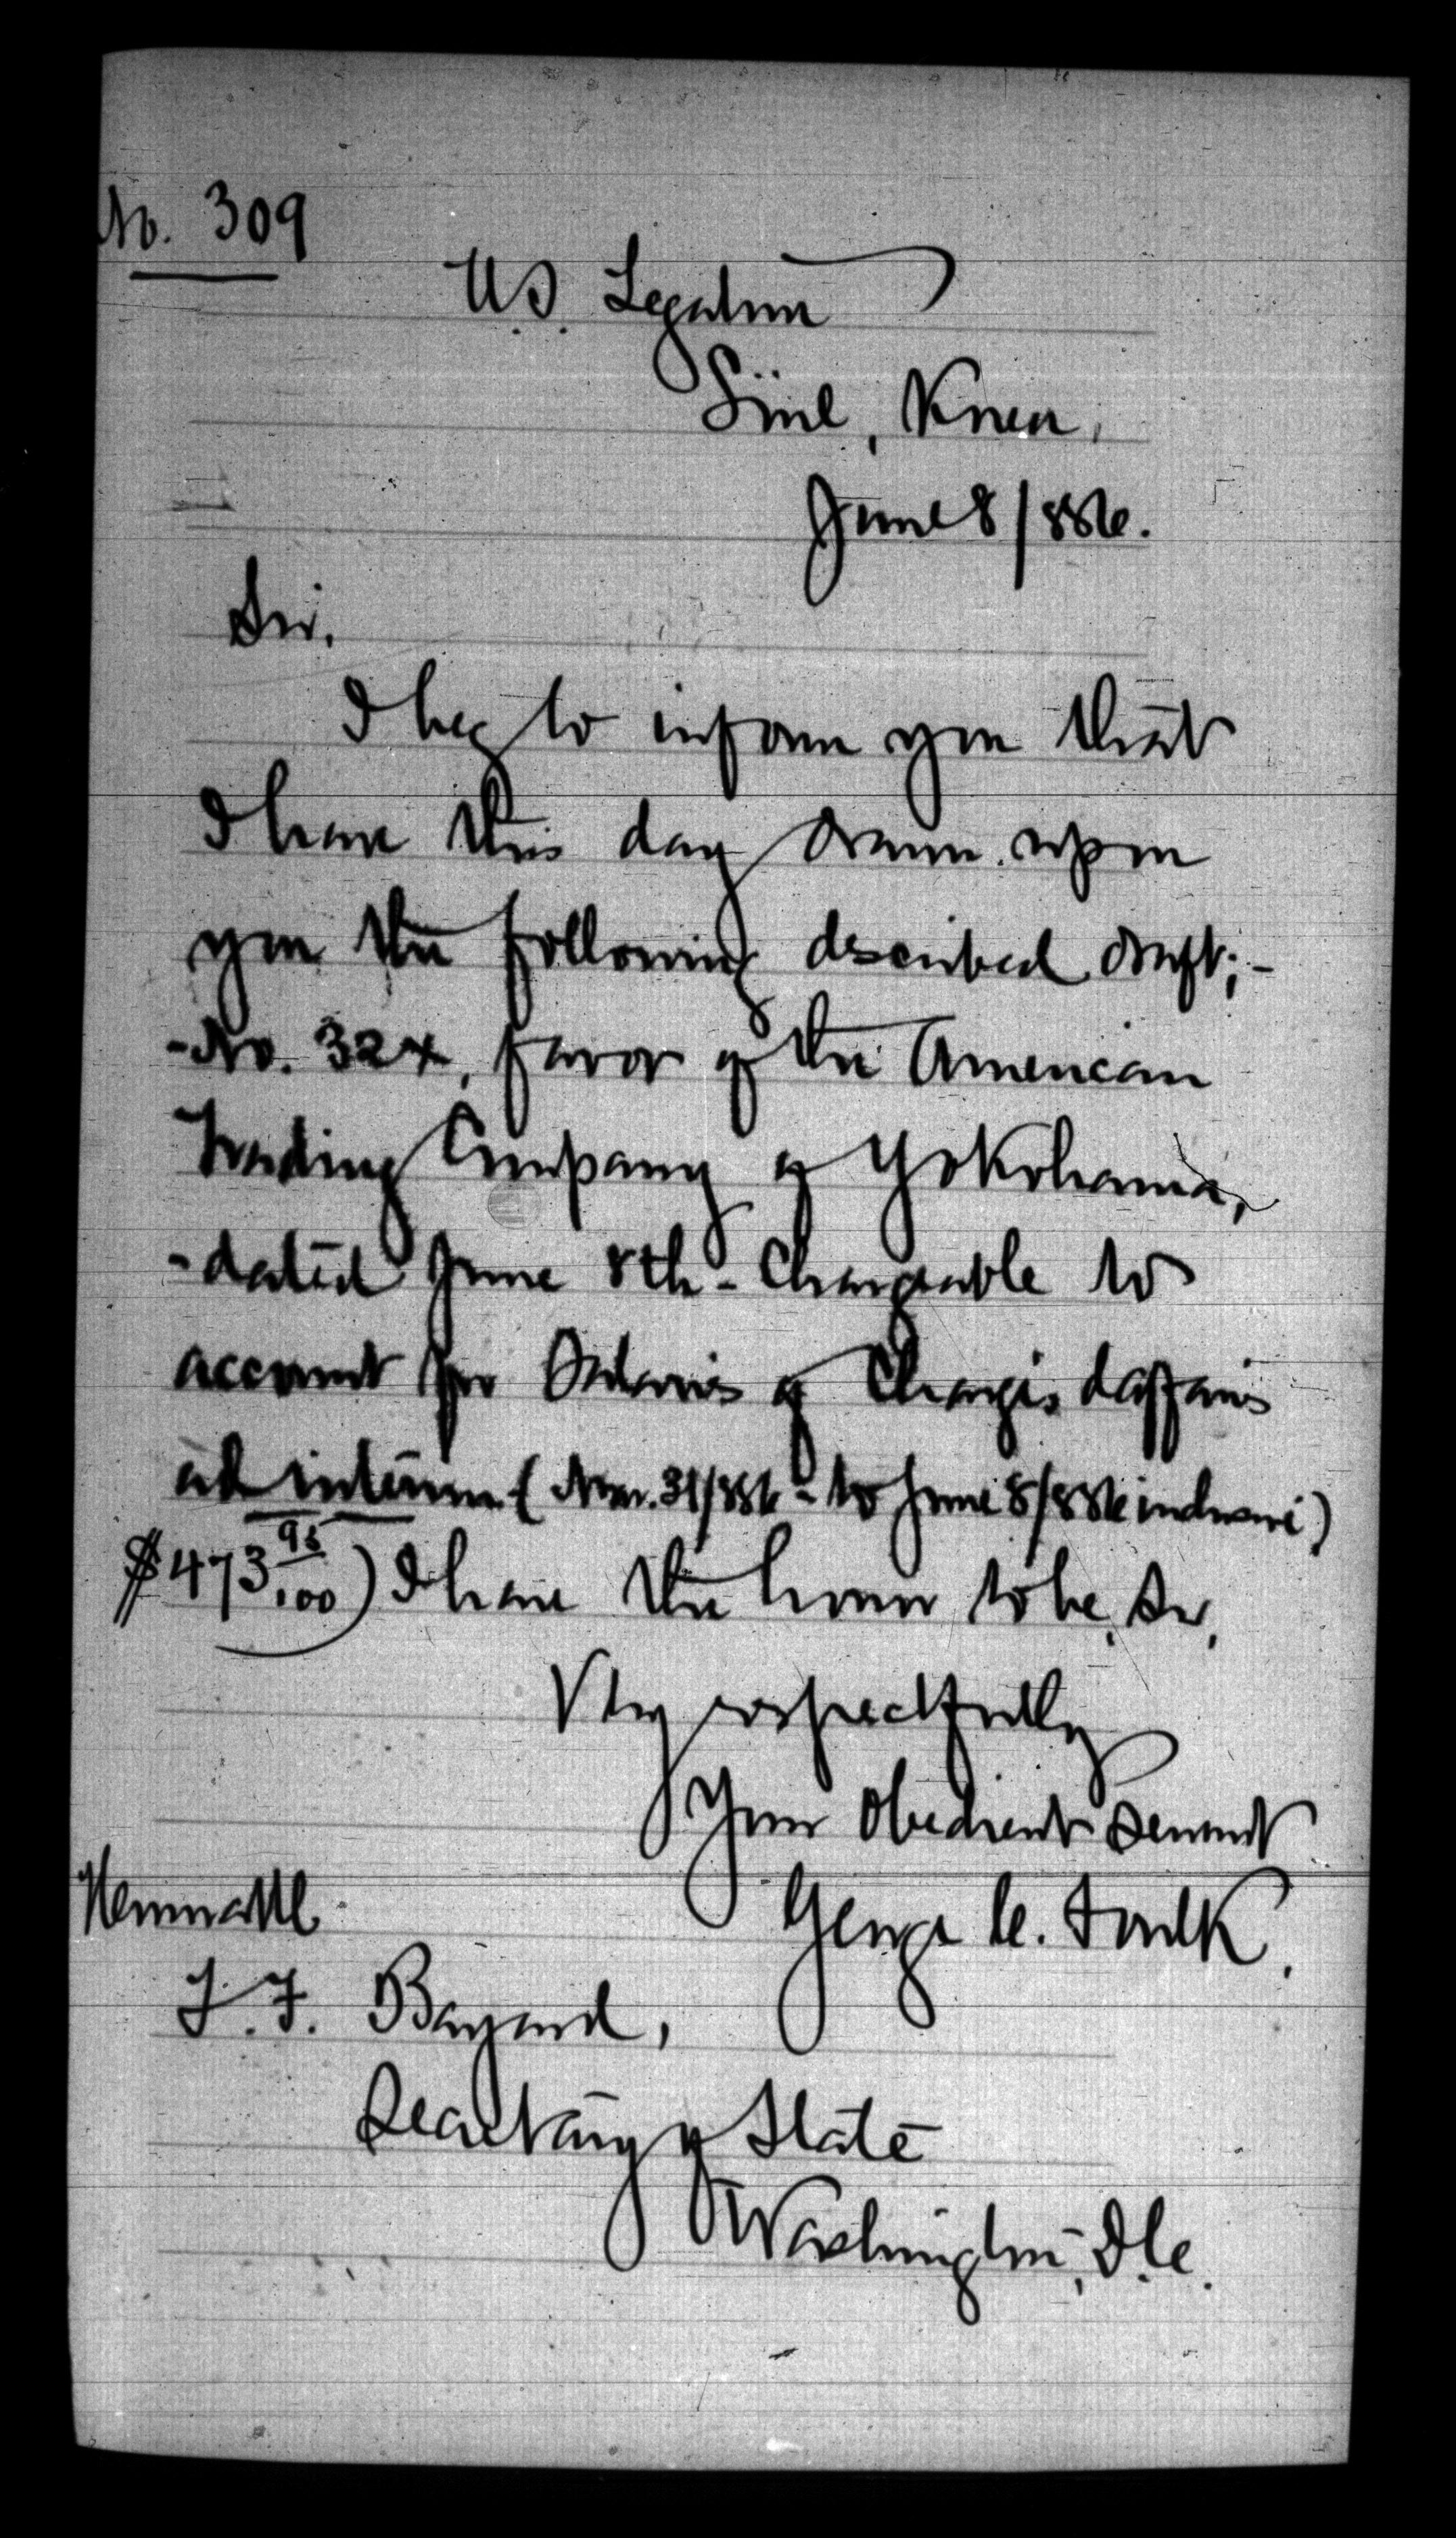 No. 309
U.S. Legation
Söul, Korea,
June 8/886.
Sir,
I beg to inform you that
I have this day drawn upon
you the following described draft;-
-No. 324, favor of the American
Trading Company of Yokohama,
-dated June 8th - Chargeable to
account for Salaries of Chargés daffairs
ad interim ( Mar. 31/886 - to June 8/886 inclusive)
$473 95/100) I have the honor to be, Sir,
Very respectfully
Your obedient servant
George C. Foulk.
Honorable
T. F. Bayard,
Secretary of State
Washington, D.C.